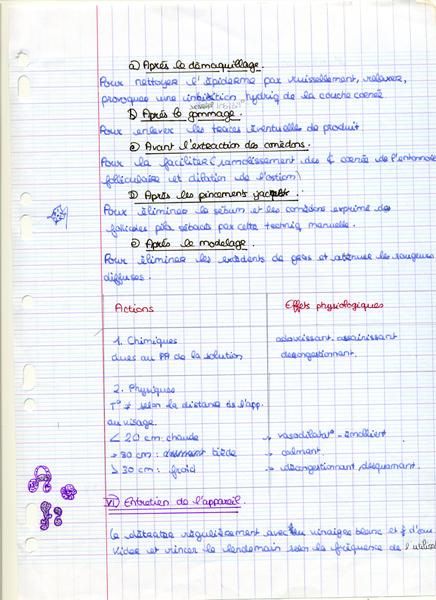 a) Après le démaquillage.
Pour nettoyer l'épiderme par ruissellement, relaxer,
provoquer une imbibition hydriq de la couche cornée
b) Après le gommage.
Pour enlever les traces éventuelles de produit
c) Avant l'extraction des comédons.
Pour la faciliter (ramollissement des cornée de l'entonnoir
folliculaire et dilation de l'ostium)
D) Après les pincement jacquet
Pour éliminer le sébum et les comédons exprimé des
follicules pilo sébacés par cette techniq manuelle.
e) Après le modelage.
Pour éliminer les excédents de gras et atténuer les rougeurs
diffuses.
Actions Effets physiologiques
1. Chimiques adoucissant, assainissant
dues au PA de la solution décongestionnant.
2. Physiques
T° ≠ selon la distance de l'app.
au visage.
< 20 cm : chaude → vasodilatat° - émollient
→ 30 cm : tiède → calmant.
> 30 cm : froid → décongestionnant, desquamant.
VI) Entretien de l'appareil.
Le détartrer régulièrement avec du vinaigre blanc et d'eau
Vider et rincer le lendemain selon la fréquence de l'utilisat